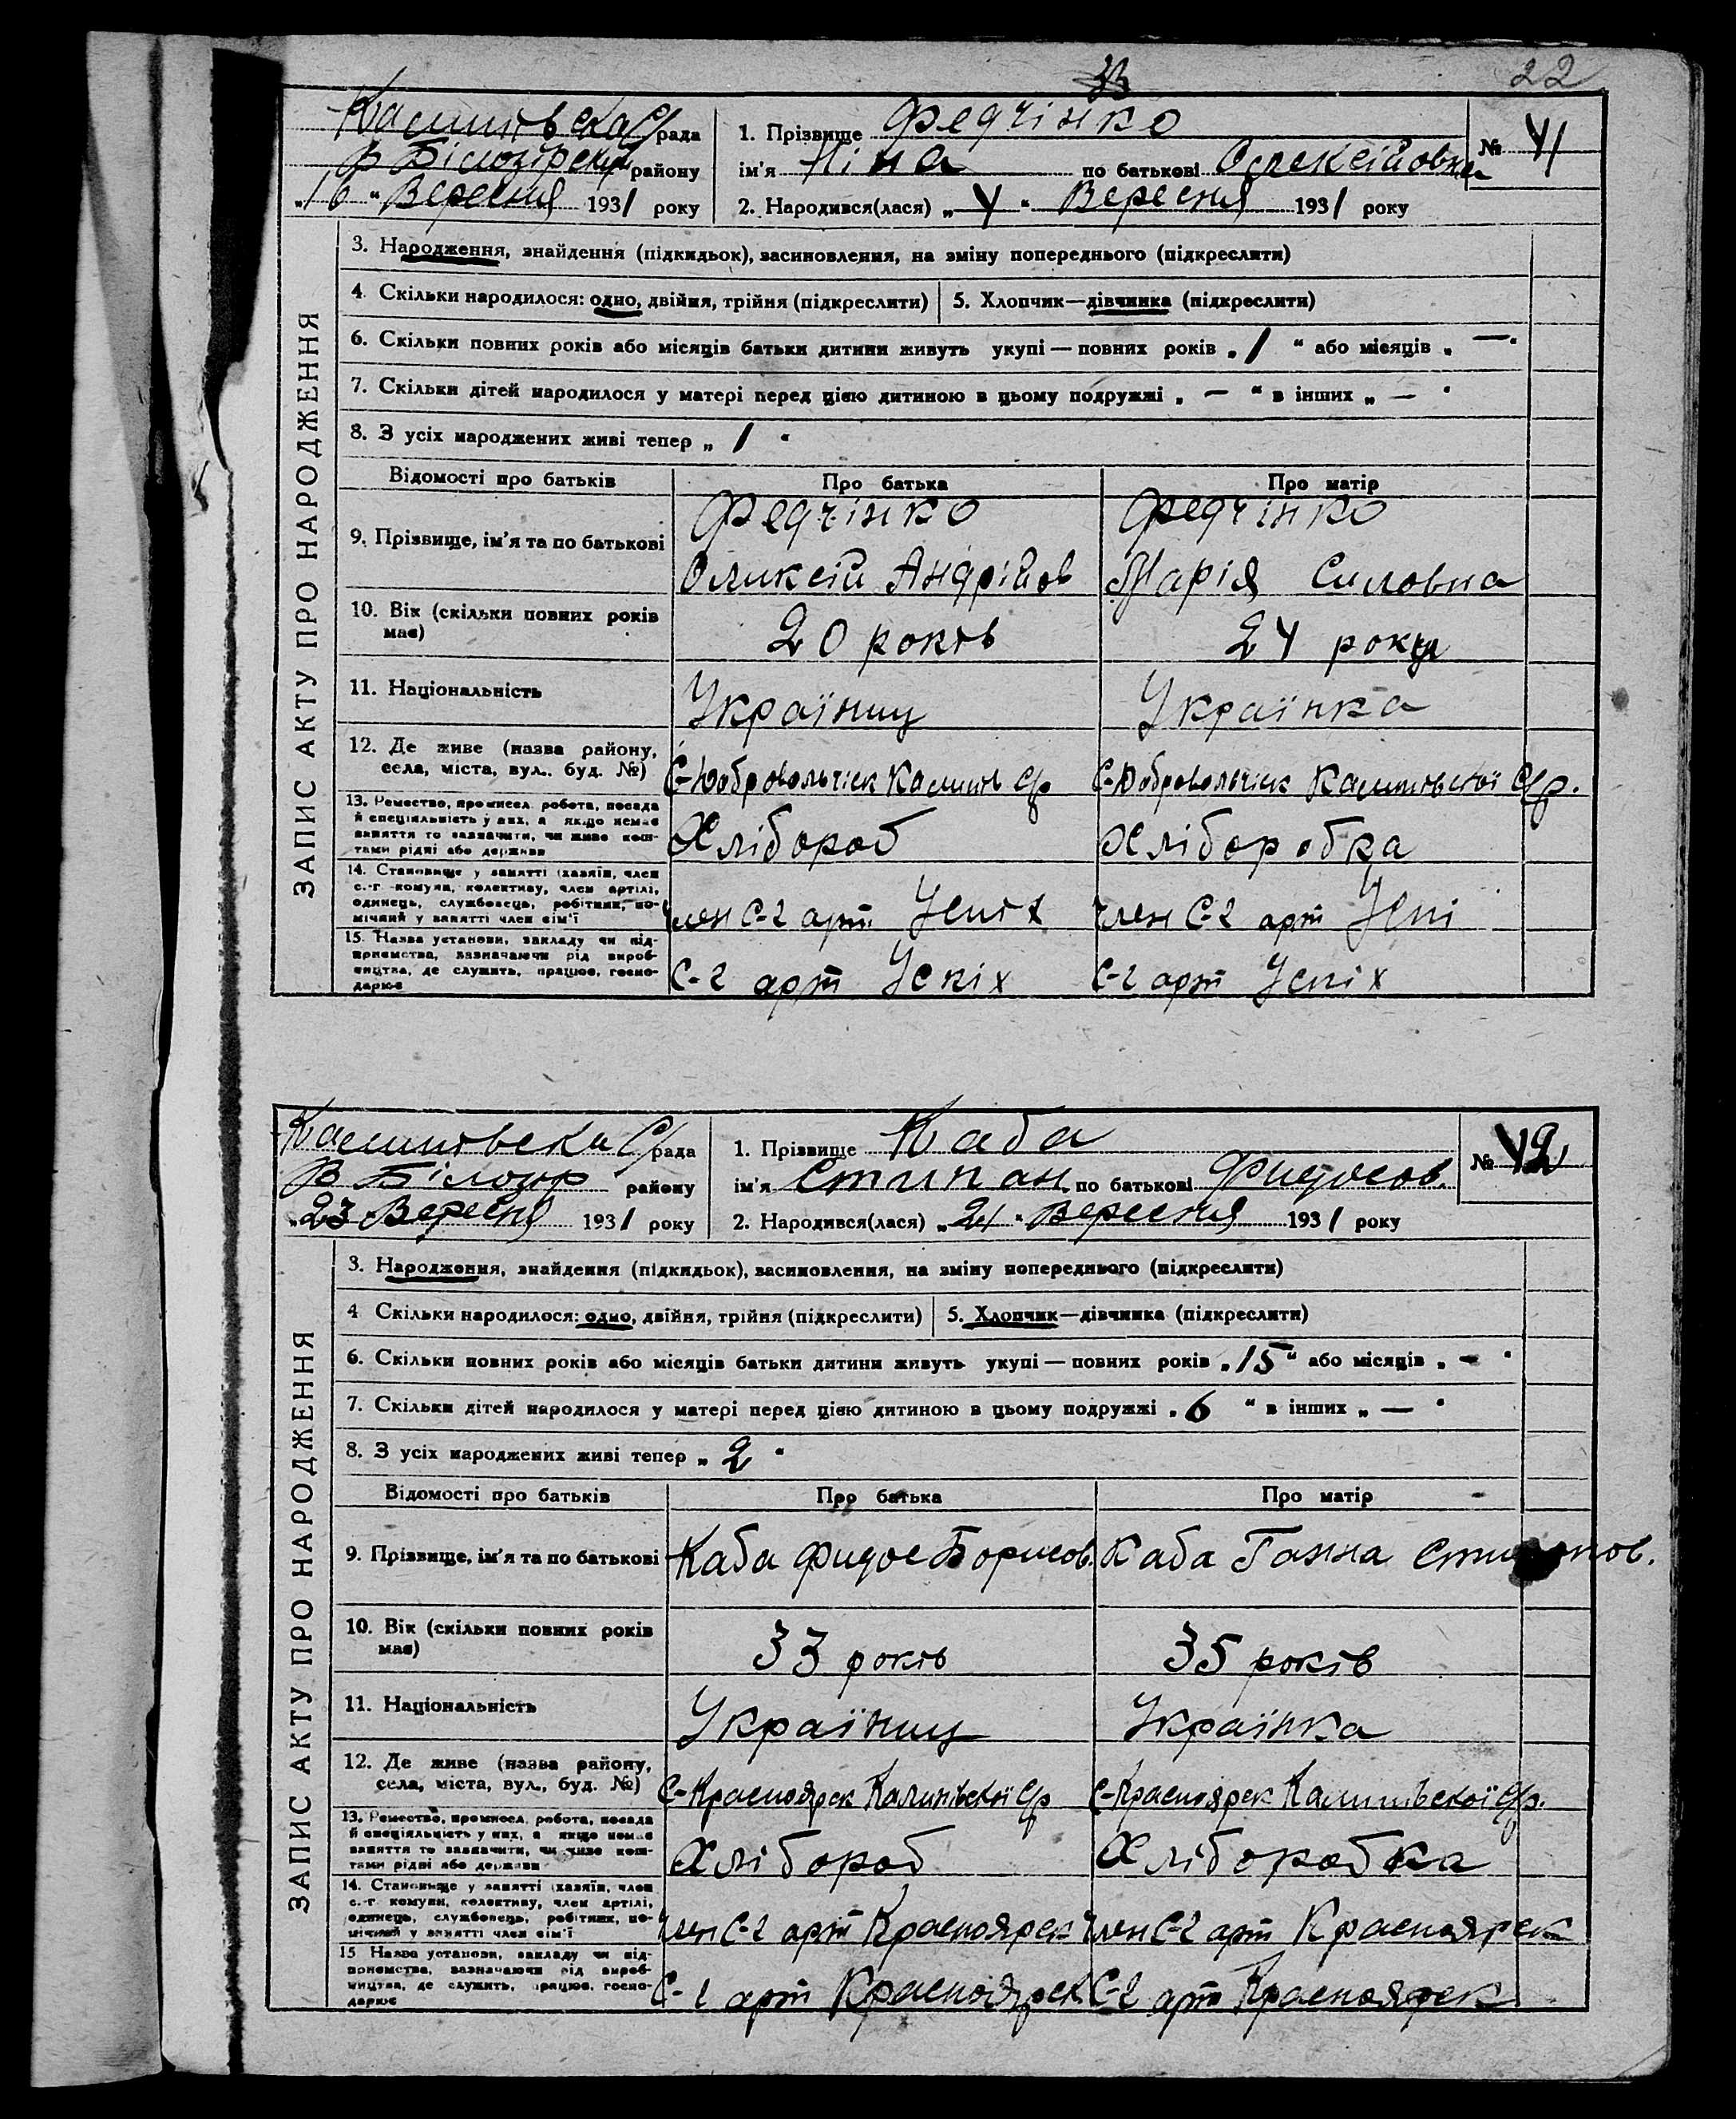 22
Калинівська С/рада
В Білозірськ району
„16“ Вересня 1931 року
1. Прізвище Федчінко
ім'я Ніна по батькові Олексейовна
2. Народився(лася) „4“ Вересня 1931 року
№ 41
ЗАПИС АКТУ ПРО НАРОДЖЕННЯ
3. Народження, знайдення (підкидьок), засиновлення, на зміну попереднього (підкреслити)
4. Скільки народилося: одно, двійня, трійня (підкреслити) 5. Хлопчик—дівчинка (підкреслити)
6. Скільки повних років або місяців батьки дитини живуть укупі — повних років „1“ або місяців „—“
7. Скільки дітей народилося у матері перед цією дитиною в цьому подружжі „—“ в інших „—“
8. З усіх народжених живі тепер „1“
Відомості про батьків Про батька Про матір
9. Прізвище, ім'я та по батькові
Федчінко Федчінко
Оликсій Андрійов Марія Силовна
10. Вік (скільки повних років
має)
20 років 24 роки
11. Національність Українец Українка
12. Де живе (назва району,
села, міста, вул., буд. №)
С-Добровольчіск Калинів с/р С-Добровольчіск Калинівської с/р.
13. Ремество, промисел, робота, посада
й спеціяльність у них, а якщо немає
заняття то зазначити, чи живе кош-
тами рідні або держави
Хлібороб Хліборобка
14. Становище у занятті (хазяїн, член
с.-г. комуни, колективу, член артілі,
одинець, службовець, робітник, по-
мічний у занятті член сім'ї
член С-г арт Успіх член С-г арт Успі
15. Назва установи, закладу чи під-
приємства, зазначаючи рід вироб-
ництва, де служить, працює, госпо-
дарює
С-г арт Успіх С-г арт Успіх
Калинівська С/рада
В Білозір району
„23“ Вересня 1931 року
1. Прізвище Каба
ім'я Стипан по батькові Фидосов.
2. Народився(лася) „21“ Вересня 1931 року
№ 42
ЗАПИС АКТУ ПРО НАРОДЖЕННЯ
3. Народження, знайдення (підкидьок), засиновлення, на зміну попереднього (підкреслити)
4 Скільки народилося: одно, двійня, трійня (підкреслити) 5. Хлопчик—дівчинка (підкреслити)
6. Скільки повних років або місяців батьки дитини живуть укупі — повних років „15“ або місяців „—“
7. Скільки дітей народилося у матері перед цією дитиною в цьому подружжі „6“ в інших „—“
8. З усіх народжених живі тепер „2“
Відомості про батьків Про батька Про матір
9. Прізвище, ім'я та по батькові Каба Фидос Борисов. Каба Ганна
10. Вік (скільки повних років
має)
33 років 35 років
11. Національність Українец Українка
12. Де живе (назва району,
села, міста, вул., буд. №)
С-Красноярск Калинівської с/р С-Красноярск Калинівської с/р.
13. Ремество, промисел, робота, посада
й спеціяльність у них, а якщо немає
заняття то зазначити, чи живе кош-
тами рідні або держави
Хлібороб Хліборобка
14. Становище у занятті (хазяїн, член
с.-г. комуни, колективу, член артілі,
одинець, службовець, робітник, по-
мічний у занятті член сім'ї
член С-г арт Красноярск член С-г арт Красноярск
15 Назва установи, закладу чи під-
приємства, зазначаючи рід вироб-
ництва, де служить, працює, госпо-
дарює
С-г арт Красноярск С-г арт Красноярск